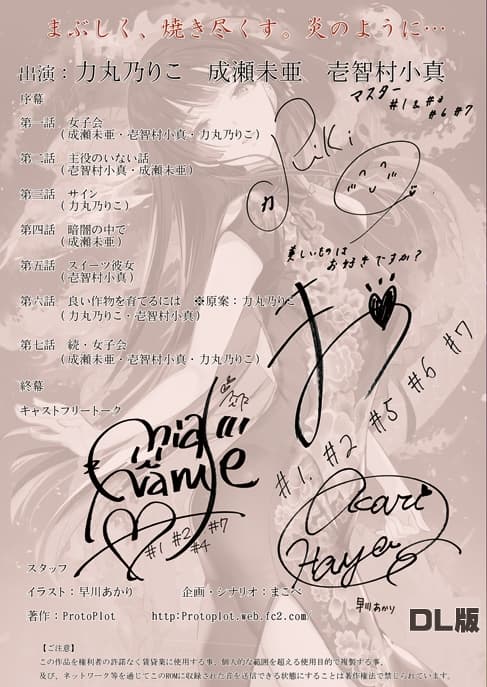 まぶしく、焼き尽くす。炎のように…
出演：力丸乃りこ　成瀬未亜　壱智村小真
マスター
#1 #2
#6 #7
序幕
第一話　女子会
（成瀬未亜・壱智村小真・力丸乃りこ）
第二話　主役のいない話
（壱智村小真・成瀬未亜）
Riki
力
第三話　サイン
（力丸乃りこ）
第四話　暗闇の中で
（成瀬未亜）
美しいものは
お好きですか？
第五話　スイーツ彼女
（壱智村小真）
第六話　良い作物を育てるには　※原案：力丸乃りこ
（力丸乃りこ・壱智村小真）
第七話　続・女子会
（成瀬未亜・壱智村小真・力丸乃りこ）
#1 #2 #5 #6 #7
終幕
キャストフリートーク
mia
#1 #2 #7
#4
Akari
Haya
早川あかり
スタッフ
イラスト：早川あかり　企画・シナリオ：まこべ
著作：ProtoPlot　http:Protoplot.web.fc2.com/
DL版
【ご注意】
この作品を権利者の許諾なく賃貸業に使用する事、個人的な範囲を超える使用目的で複製する事、
及び、ネットワーク等を通じてこのROMに収録された音を送信できる状態にすることは著作権法で禁じられています。